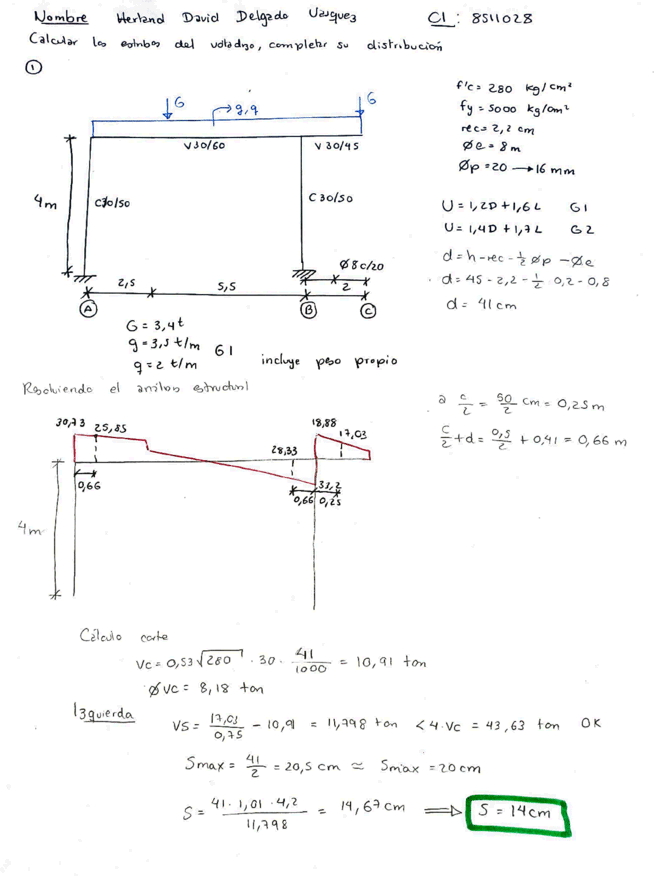 Nombre Herland David Delgado Vasquez CI : 8511028
Calcular los estribos del voladizo, completar su distribución
1
G
g,q
G
V30/60
V30/45
C30/50
C30/50
4m
Ø8c/20
2,5
5,5
2
A
B
C
f'c = 280 kg/cm²
fy = 5000 kg/cm²
rec = 2,2 cm
Øe = 8m
Øp = 20 → 16 mm
U = 1,2D + 1,6L G1
U = 1,4D + 1,7L G2
d = h - rec - 1/2 Øp - Øe
d = 45 - 2,2 - 1/2 0,2 - 0,8
d = 41 cm
G = 3,4t
g = 3,5 t/m G1
q = 2 t/m
incluye peso propio
Resolviendo el análisis estructural
a c/2 = 50/2 cm = 0,25 m
c/2 + d = 0,5/2 + 0,41 = 0,66 m
30,73
25,85
18,88
17,03
28,33
33,2
0,66
0,66
0,25
4m
Cálculo corte
Vc = 0,53√280 · 30 · 41/1000 = 10,91 ton
ØVc = 8,18 ton
Izquierda
VS = 17,03/0,75 - 10,91 = 11,798 ton < 4·Vc = 43,63 ton OK
Smax = 41/2 = 20,5 cm ≃ Smax = 20 cm
S = 41 · 1,01 · 4,2/11,798 = 14,67 cm ⟹ S = 14 cm